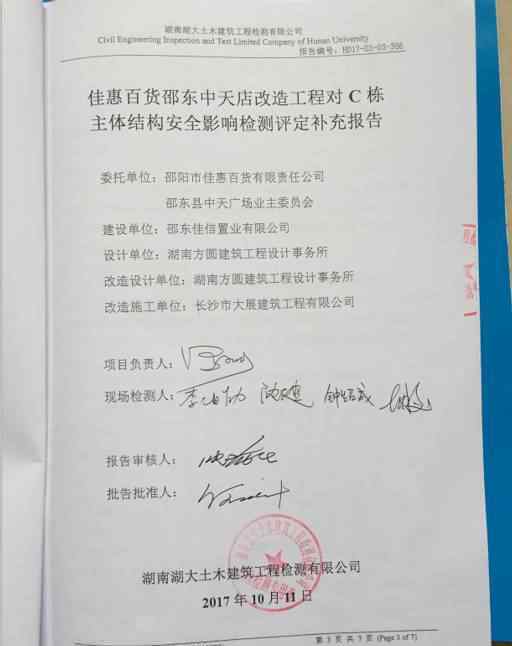 湖南湖大土木建筑工程检测有限公司
Civil Engineering Inspection and Test Limited Company of Hunan University
报告编号: HD17-03-03-506
佳惠百货邵东中天店改造工程对 C 栋
主体结构安全影响检测评定补充报告
委托单位：邵阳市佳惠百货有限责任公司
邵东县中天广场业主委员会
建设单位：邵东佳信置业有限公司
设计单位：湖南方圆建筑工程设计事务所
改造设计单位：湖南方圆建筑工程设计事务所
改造施工单位：长沙市大展建筑工程有限公司
项目负责人：
现场检测人：
报告审核人：
批告批准人：
湖南湖大土木建筑工程检测有限公司
2017 年 10 月 11 日